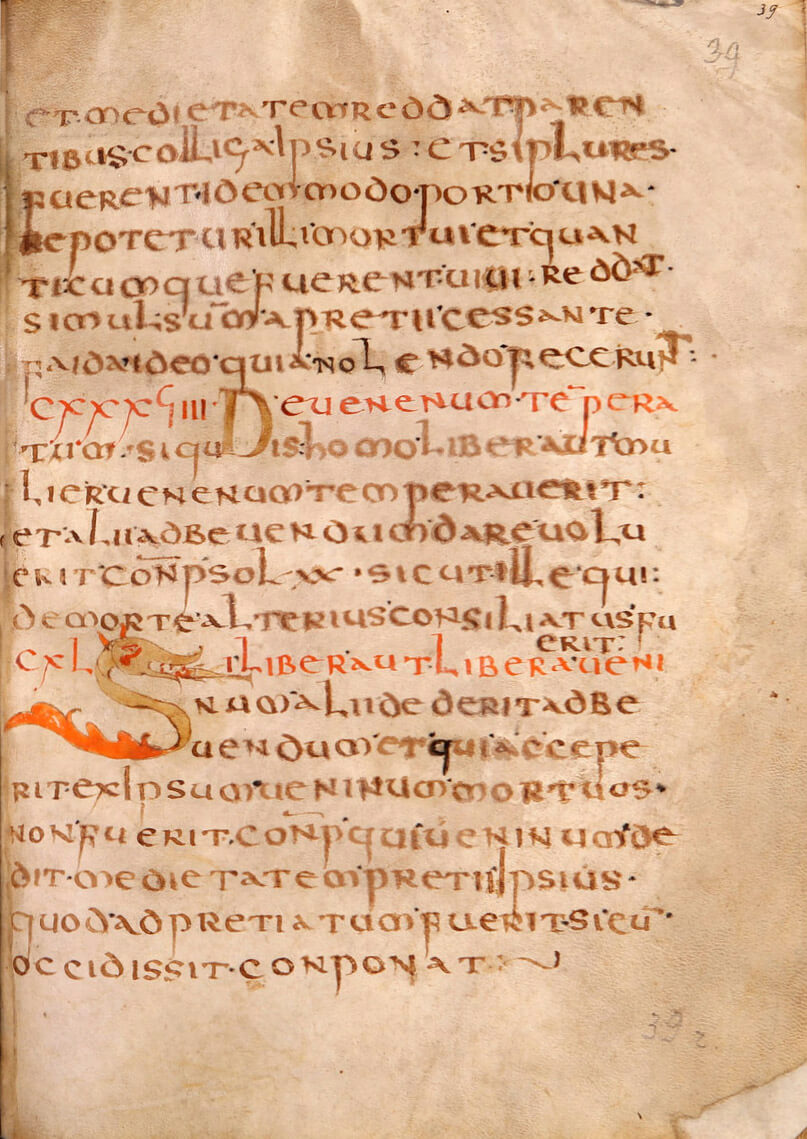 39
39
et·medietatem reddat paren
tibus·collig·a ipsius : et·si plures·
fuerent·idem modo·portio una·
repotetur illi mortui et quan
ticumque fuerent·uiui : reddat·
simul·suma pretii cessante·
faida·ideo quia nolendo fecerunt :
CXXXVIIII De uenenum·tēpera
tum·si quis homo liber aut mu
lier uenenum temperauerit :
et aliia adbeuendum dare uolu
erit conp sol xx·sicut ille qui :
de morte alterius consiliatus fu
erit :
CXL Si liber aut·libera ueni
num aliide dederit adbe
uendum et qui accepe
rit·ex ipsum ueninum mortuos·
non fuerit·conp qui ueninum de
dit·medietatem pretii ipsius·
quod·adpretiatum fuerit·si eū·
occidissit·conponat :
39 r